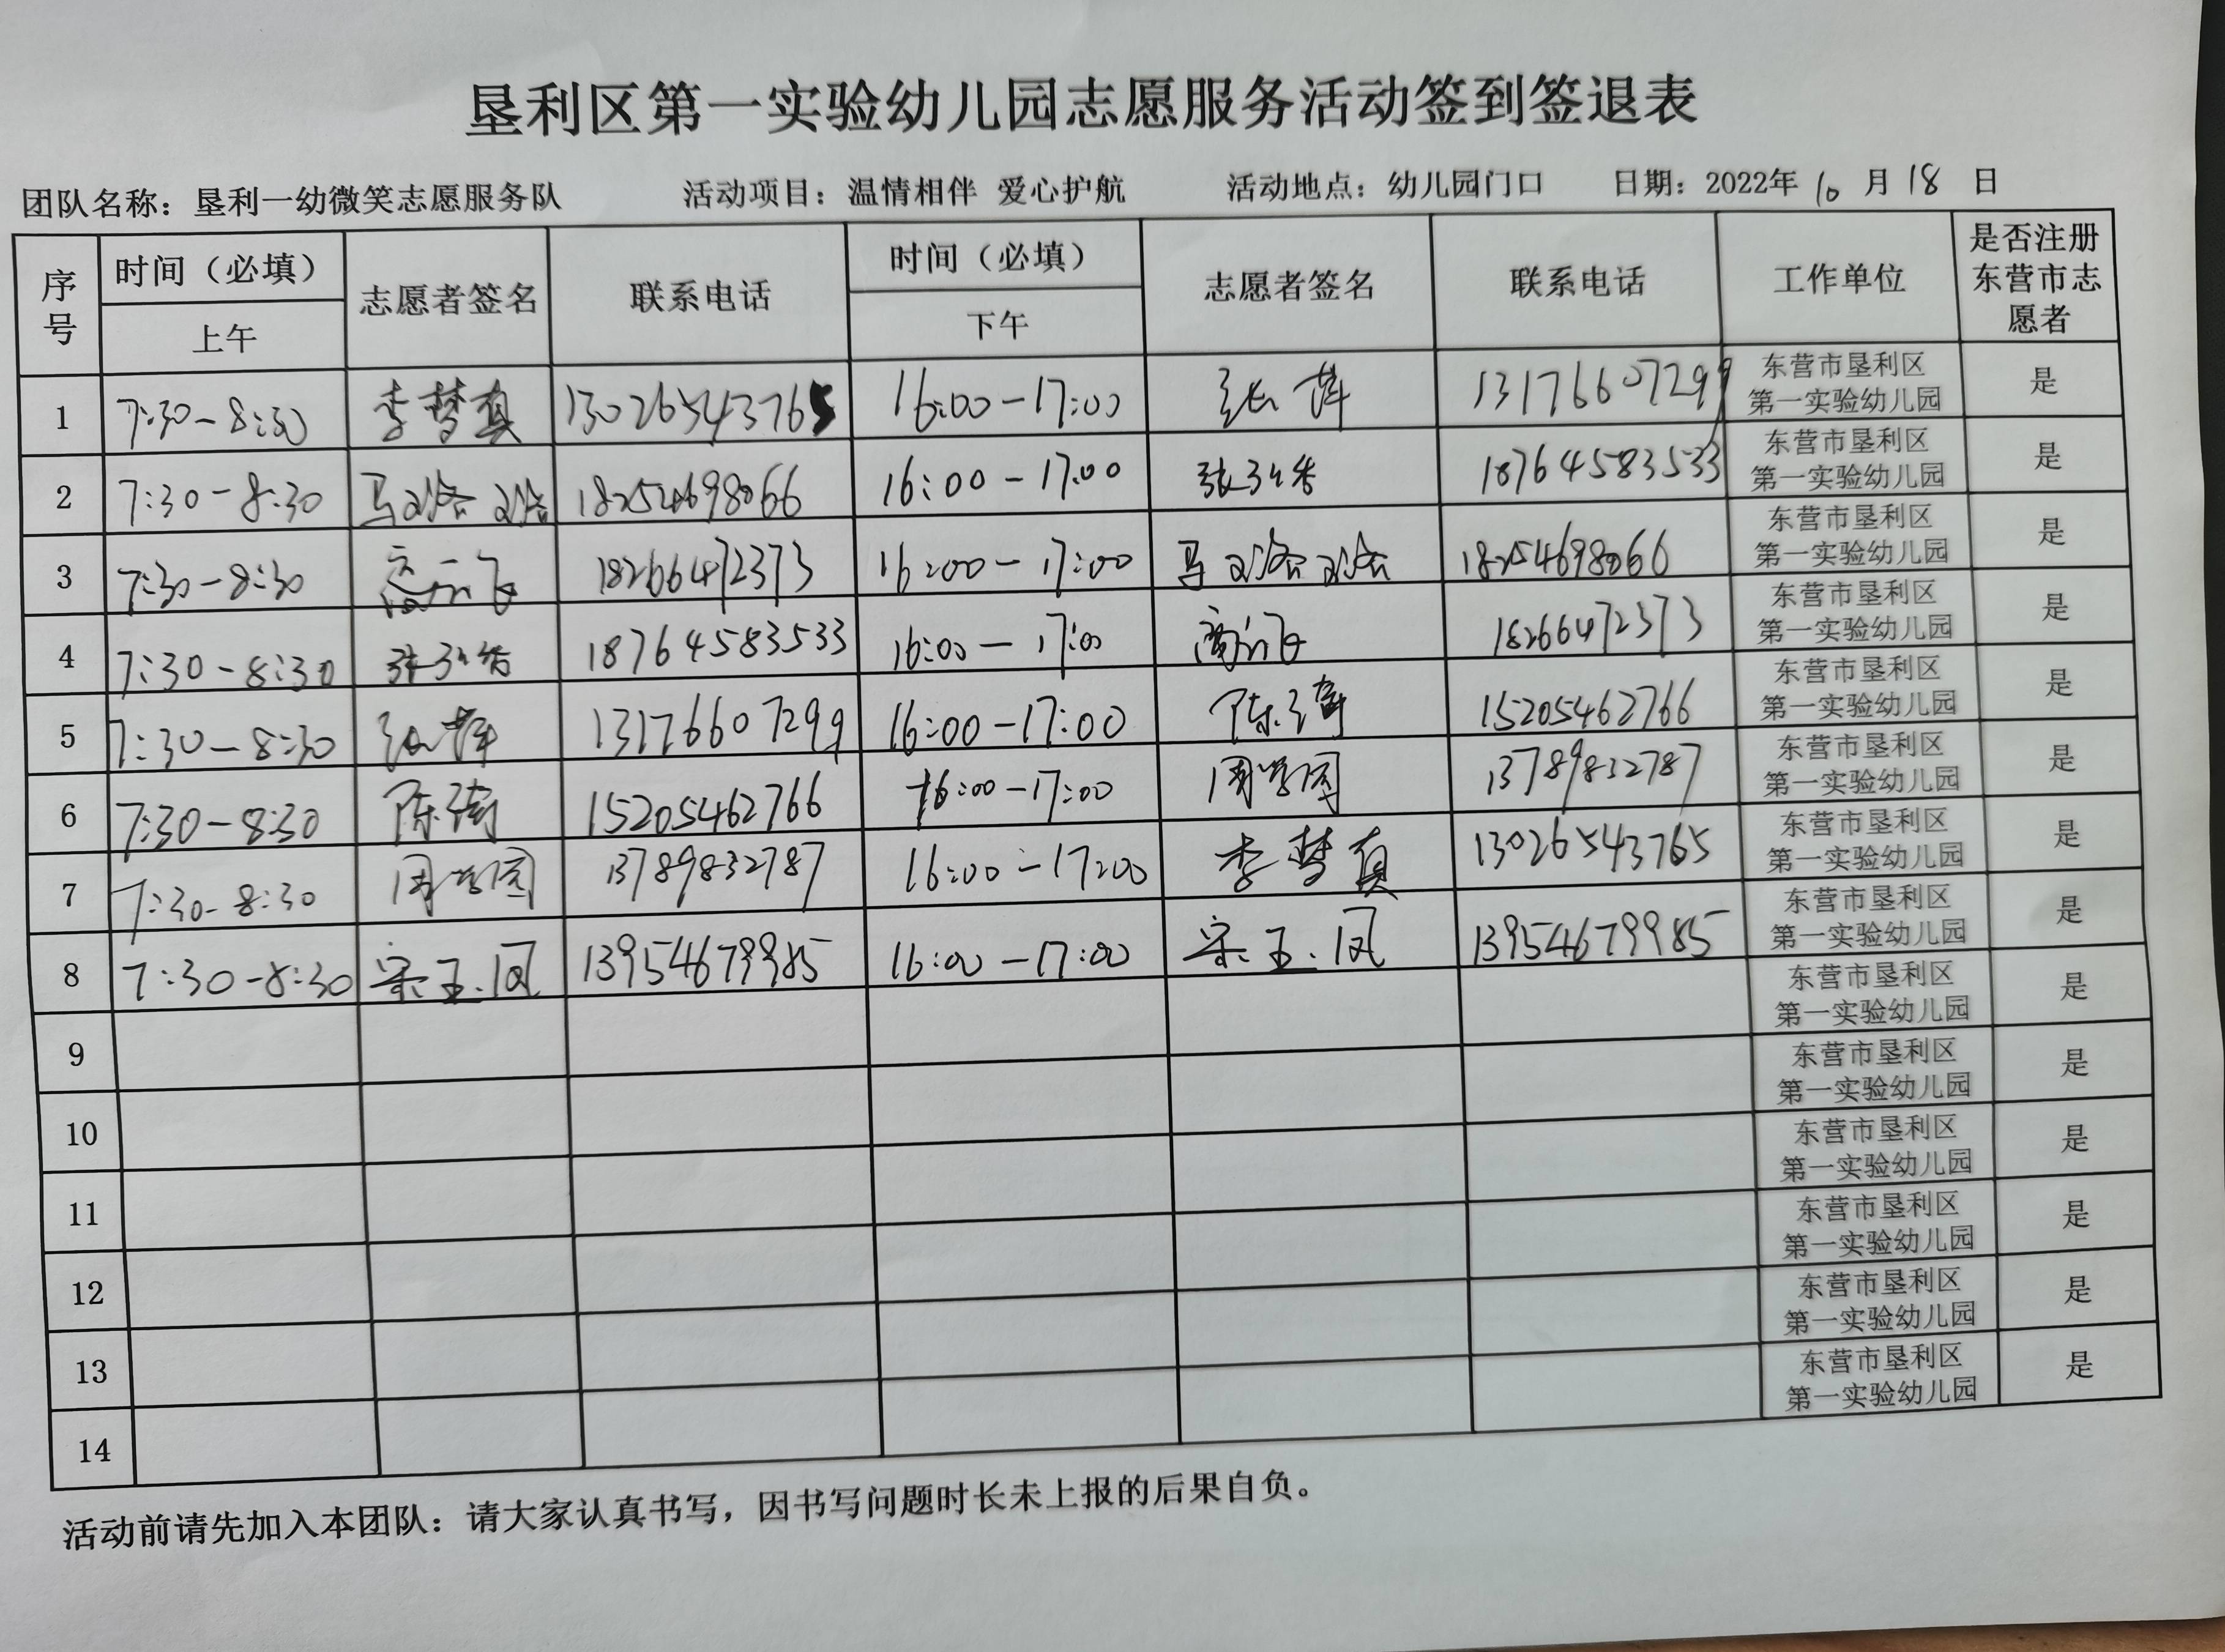 垦利区第一实验幼儿园志愿服务活动签到签退表
团队名称：垦利一幼微笑志愿服务队 活动项目：温情相伴 爱心护航 活动地点：幼儿园门口 日期：2022年 10 月 18 日
序号 时间（必填） 上午 志愿者签名 联系电话 时间（必填） 下午 志愿者签名 联系电话 工作单位 是否注册东营市志愿者
1 7:30-8:30 李梦真 13026543765 16:00-17:00 张萍 13176607299 东营市垦利区第一实验幼儿园 是
2 7:30-8:30 马璐璐 18254698066 16:00-17:00 张 18764583533 东营市垦利区第一实验幼儿园 是
3 7:30-8:30 飞 18266472373 16:00-17:00 马璐璐 18254698066 东营市垦利区第一实验幼儿园 是
4 7:30-8:30 张 18764583533 16:00-17:00 飞 18266472373 东营市垦利区第一实验幼儿园 是
5 7:30-8:30 张萍 13176607299 16:00-17:00 陈 15205462766 东营市垦利区第一实验幼儿园 是
6 7:30-8:30 陈 15205462766 16:00-17:00 周学园 13789832787 东营市垦利区第一实验幼儿园 是
7 7:30-8:30 周学园 13789832787 16:00-17:00 李梦真 13026543765 东营市垦利区第一实验幼儿园 是
8 7:30-8:30 宋玉凤 13954679985 16:00-17:00 宋玉凤 13954679985 东营市垦利区第一实验幼儿园 是
9 东营市垦利区第一实验幼儿园 是
10 东营市垦利区第一实验幼儿园 是
11 东营市垦利区第一实验幼儿园 是
12 东营市垦利区第一实验幼儿园 是
13 东营市垦利区第一实验幼儿园 是
14 东营市垦利区第一实验幼儿园 是
活动前请先加入本团队：请大家认真书写，因书写问题时长未上报的后果自负。